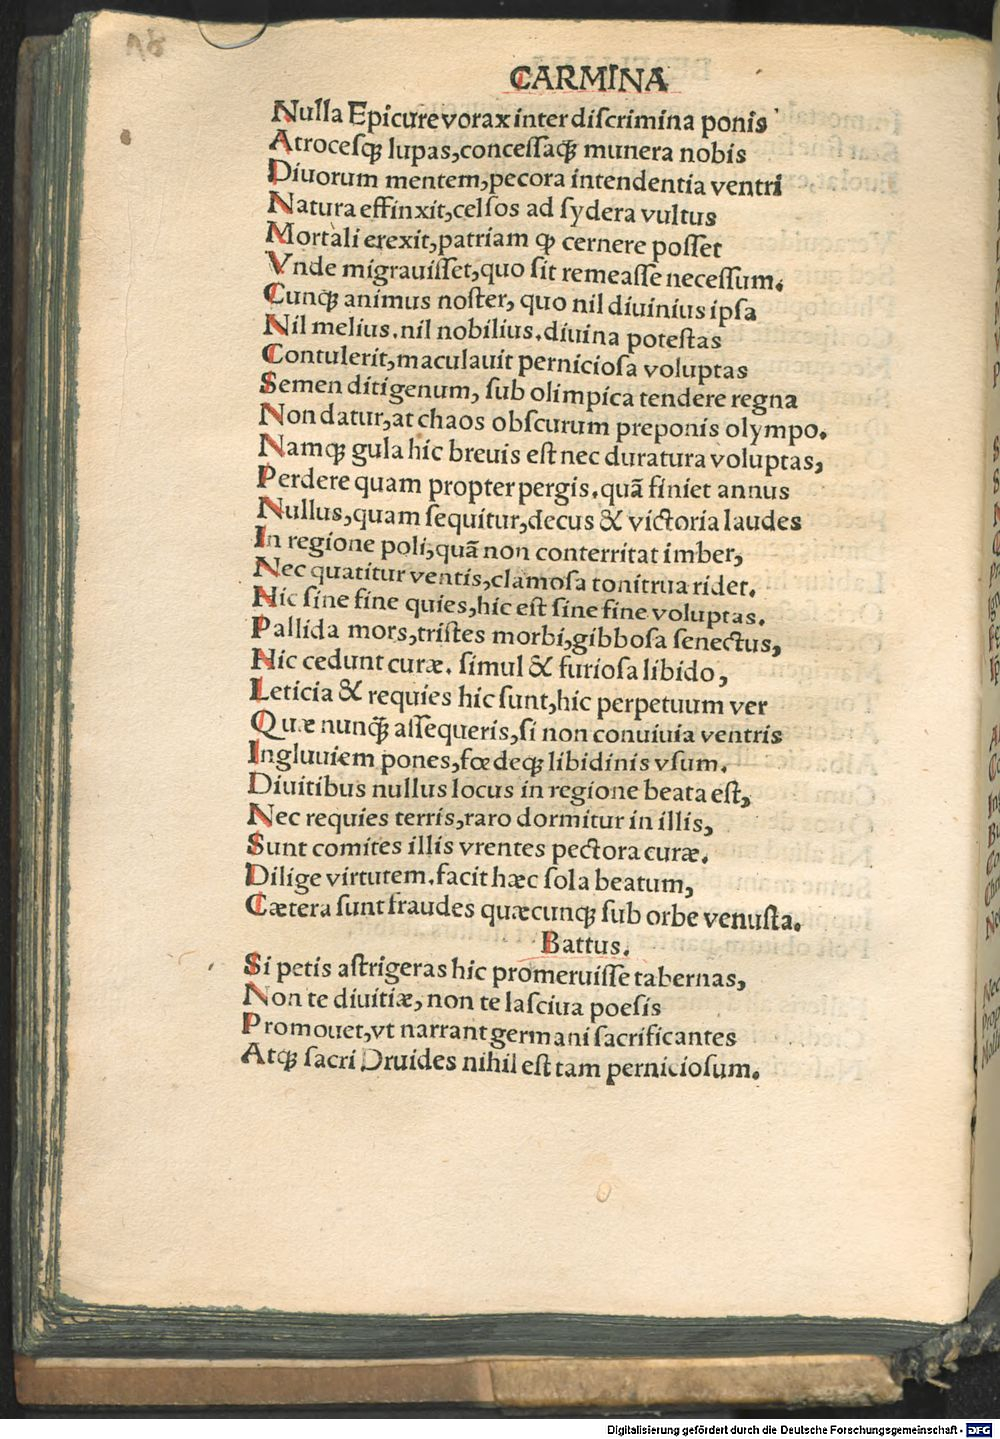 18
CARMINA
Nulla Epicure vorax inter diſcrimina ponis
Atroceſqꝫ lupas, conceſſaqꝫ munera nobis
Diuorum mentem, pecora intendentia ventri
Natura effinxit, celſos ad ſydera vultus
Mortali erexit, patriam ꝙ cernere poſſet
Vnde migrauiſſet, quo ſit remeaſſe neceſſum.
Cunqꝫ animus noſter, quo nil diuinius ipſa
Nil melius. nil nobilius. diuina poteſtas
Contulerit, maculauit pernicioſa voluptas
Semen ditigenum, ſub olimpica tendere regna
Non datur, at chaos obſcurum preponis olympo.
Namqꝫ gula hic breuis eſt nec duratura voluptas,
Perdere quam propter pergis. quã finiet annus
Nullus, quam ſequitur, decus & victoria laudes
In regione poli, quã non conterritat imber,
Nec quatitur ventis, clamoſa tonitrua ridet.
Hic ſine fine quies, hic eſt ſine fine voluptas.
Pallida mors, triſtes morbi, gibboſa ſenectus,
Hic cedunt curæ. ſimul & furioſa libido,
Leticia & requies hic ſunt, hic perpetuum ver
Quæ nunqꝫ̃ aſſequeris, ſi non conuiuia ventris
Ingluuiem pones, fœdeqꝫ libidinis vſum.
Diuitibus nullus locus in regione beata eſt,
Nec requies terris, raro dormitur in illis,
Sunt comites illis vrentes pectora curæ.
Dilige virtutem. facit hæc ſola beatum,
Cætera ſunt fraudes quæcunqꝫ ſub orbe venuſta.
Battus.
Si petis aſtrigeras hic promeruiſſe tabernas,
Non te diuitiæ, non te laſciua poeſis
Promouet, vt narrant germani ſacrificantes
Atqꝫ ſacri Druides nihil eſt tam pernicioſum.
Digitalisierung gefördert durch die Deutsche Forschungsgemeinschaft - DFG